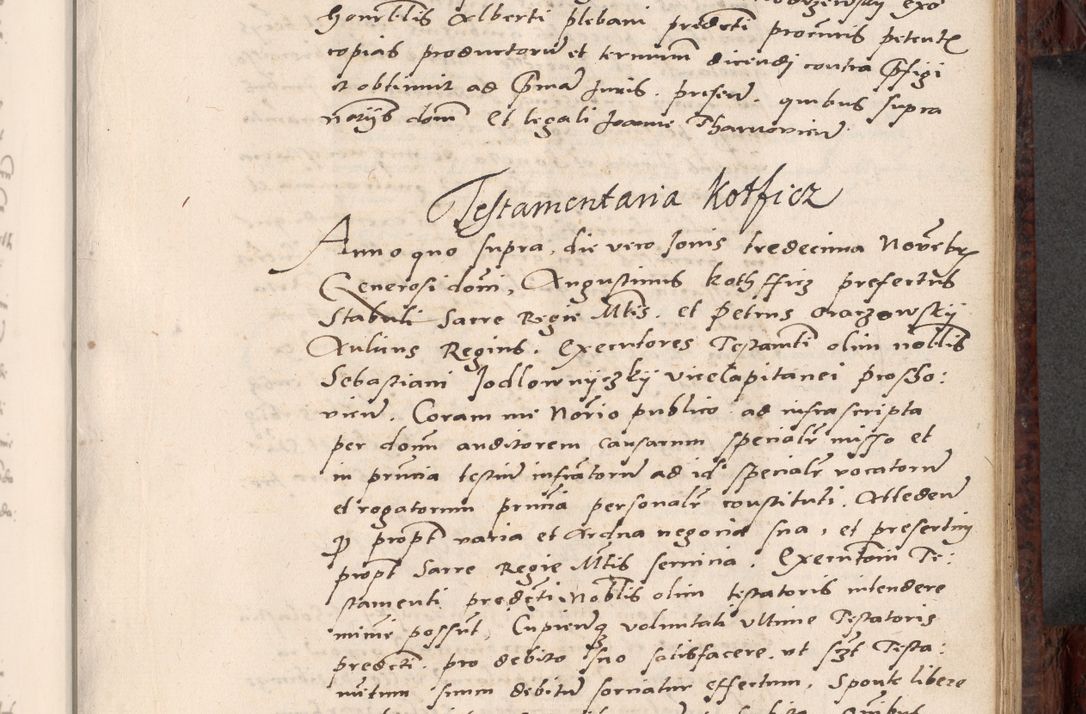 honrblis Alberti plebani predcti procuris petente
copias productorum et terminum dicendi contra prfigi
et obtinuit ad prima Juris. presen. quibus supra
noriis dom Et legali Joanne Tharnovien
Testamentaria Kotficz
Anno quo supra, die vero Jovis tredecima Novebr
Generosi domi, Augustinus Kothfficz prefectus
Stabuli Sacre Regie Mtis. et Petrus Oraczowskÿ
Aulicus Regius. Executores Testamti olim noblis
Sebastiani Jodlownÿczkÿ vicecapitanei prosso:
vicien. Coram me Norio publico ad infrascripta
per domi auditorem causarum specialr misso et
in prncia testium infratorum ad id specialr vocatorum
et rogatorum prncia personalr constituti. Atteden
qp propt varia et Ardua negocia sua, et presertim
propt Sacre Regie Mtis servicia. Executioni Te:
stamenti predcti Noblis olim testatoris intendere
minime possunt, Cupientq voluntati ultime Testatoris
predcti. pro debito suo satisfacere. ut szt Testa:
mentum suum debitum sorciatur effectum, Sponte libere